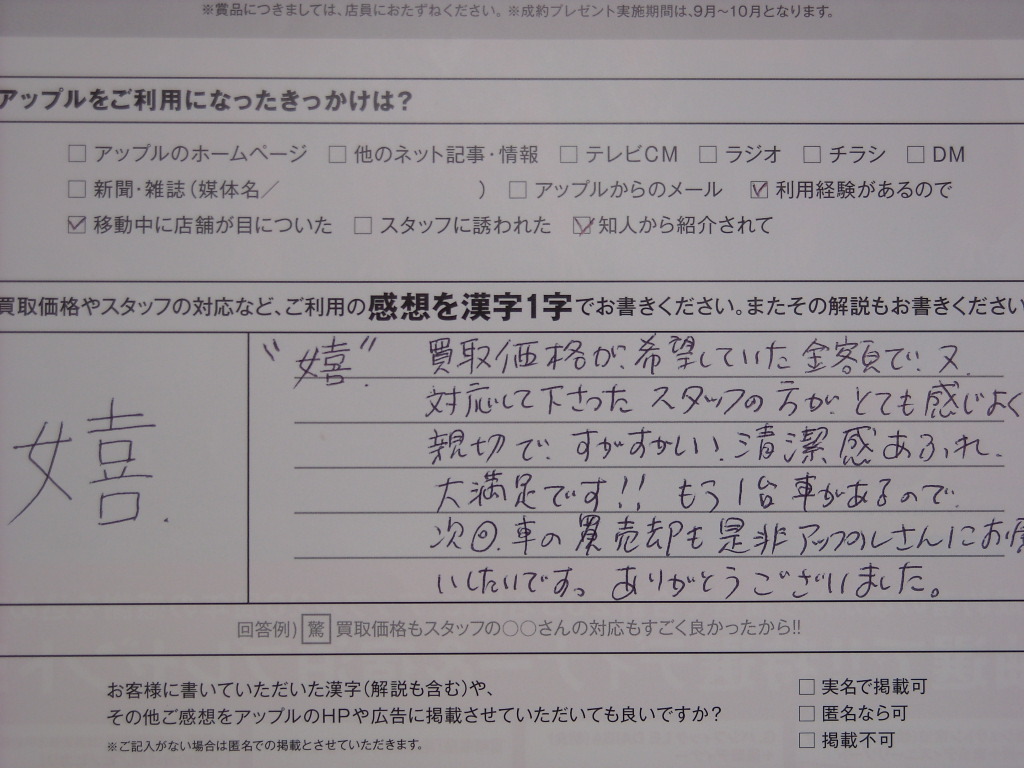 ※賞品につきましては、店員におたずねください。※成約プレゼント実施期間は、9月〜10月となります。
アップルをご利用になったきっかけは?
□ アップルのホームページ □ 他のネット記事・情報 □ テレビCM □ ラジオ □ チラシ □ DM
□ 新聞・雑誌(媒体名/ ) □ アップルからのメール ☑ 利用経験があるので
☑ 移動中に店舗が目についた □ スタッフに誘われた ☑ 知人から紹介されて
買取価格やスタッフの対応など、ご利用の感想を漢字1字でお書きください。またその解説もお書きください
嬉.
"嬉" 買取価格が、希望していた金額で、又、
対応して下さった スタッフの方が、とても感じよく
親切で、すがすがしい、清潔感あふれ、
大満足です!! もう1台車があるので、
次回、車の売却も是非アップルさんにお願
いしたいです。ありがとうございました。
回答例) 驚 買取価格もスタッフの○○さんの対応もすごく良かったから!!
お客様に書いていただいた漢字(解説も含む)や、
その他ご感想をアップルのHPや広告に掲載させていただいても良いですか?
※ご記入がない場合は匿名での掲載とさせていただきます。
□ 実名で掲載可
□ 匿名なら可
□ 掲載不可